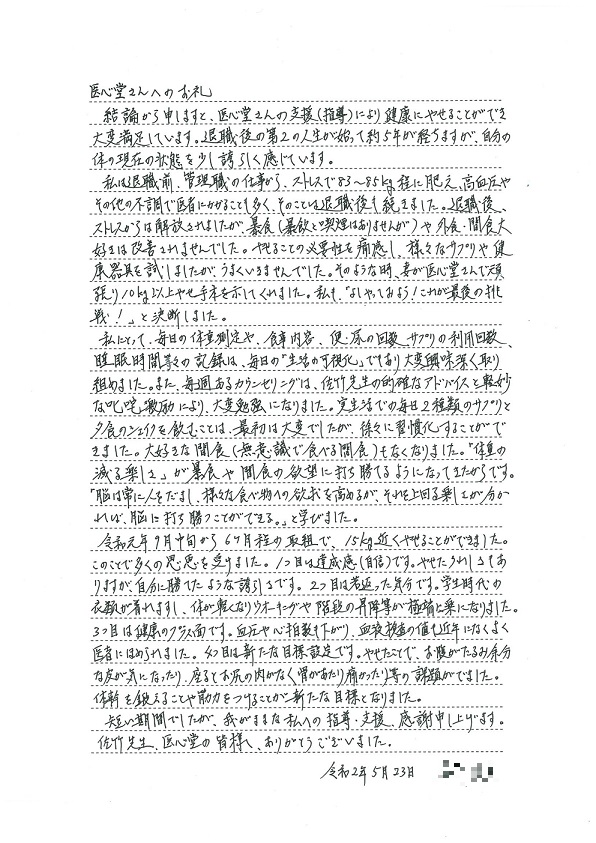 医心堂さんへのお礼
結論から申しますと、医心堂さんの支援(指導)により健康にやせることができ
大変満足しています。退職後の第2の人生が始って約5年が経ちますが、自分の
体の現在の状態を少し誇らしく感じています。
私は退職前、管理職の仕事から、ストレスで83〜85kg程に肥え、高血圧や
その他の不調で医者にかかることも多く、そのことは退職後も続きました。退職後、
ストレスからは解放されましたが、暴食(暴飲と喫煙はありませんが)や外食・間食大
好きは改善されませんでした。やせることの必要性を痛感し、様々なサプリや健
康器具を試しましたが、うまくいきませんでした。そのような時、妻が医心堂さんで頑
張り10kg以上やせ手本を示してくれました。私も「よしやってみよう!これが最後の挑
戦!」と決断しました。
私にとって、毎日の体重測定や、食事内容、便・尿の回数、サプリの利用回数、
睡眠時間等々の記録は、毎日の"生活の可視化"であり大変興味深く取り
組めました。また、毎週あるカウンセリングは、佐竹先生の的確なアドバイスと軽妙
な叱咤激励により、大変勉強になりました。実生活での毎日2種類のサプリと
夕食のシェイクを飲むことは、最初は大変でしたが、徐々に習慣化することがで
きました。大好きな間食(無意識で食べる間食)もなくなりました。"体重の
減る楽しさ"が暴食や間食の欲望に打ち勝てるようになってきたからです。
「脳は常に人をだまし、様々な食べ物への欲求を高めるが、それを上回る楽しさが分か
れば、脳に打ち勝つことができる。」と学びました。
令和元年9月中旬から6ヶ月程の取組で、15kg近くやせることができました。
このことで多くの恩恵を受けました。1つ目は達成感(自信)です。やせたうれしさもあ
りますが、自分に勝てたような誇らしさです。2つ目は若返った気分です。学生時代の
衣類が着れますし、体が軽くなりウオーキングや階段の昇降等が極端に楽になりました。
3つ目は健康のプラス面です。血圧や心拍数も下がり、血液検査の値も近年になくよく
医者にほめられました。4つ目は新たな目標設定です。やせたことで、お腹がたるみ余分
な皮が気になったり、座るとお尻の肉がなく(骨があたり痛かったり)等の課題がでました。
体幹を鍛えることや筋力をつけることが新たな目標となりました。
短い期間でしたが、我がままな私への指導・支援、感謝申し上げます。
佐竹先生、医心堂の皆様へ、ありがとうございました。
令和2年5月23日